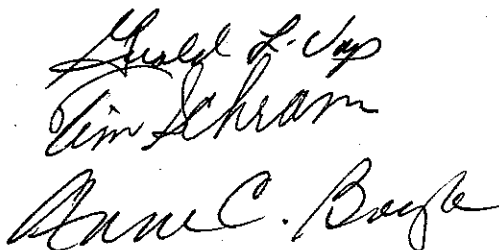 Gerald L. Vap
Tim Schram
Anne C. Boyle